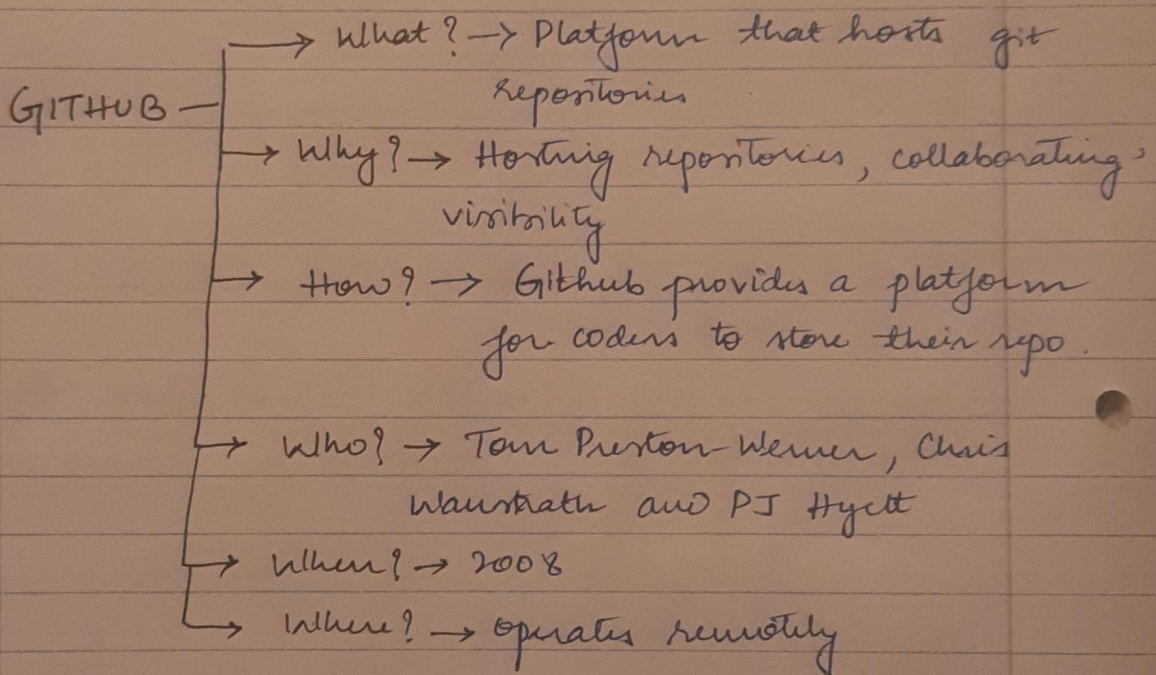 What? → Platform that hosts git
repositories
GITHUB
Why? → Hosting repositories, collaborating,
visibility
How? → Github provides a platform
for coders to store their repo.
Who? → Tom Preston-Werner, Chris
Wanstrath and PJ Hyett
When? → 2008
Where? → operates remotely